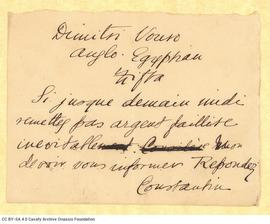 Dimitri Vouro
Anglo-Egyptian
Zifta
Si jusque demain midi
remettez pas argent faillite
inevitable mon
devoir vous informer Repondez
Constantin
CC BY-SA 4.0 Cavafy Archive Onassis Foundation